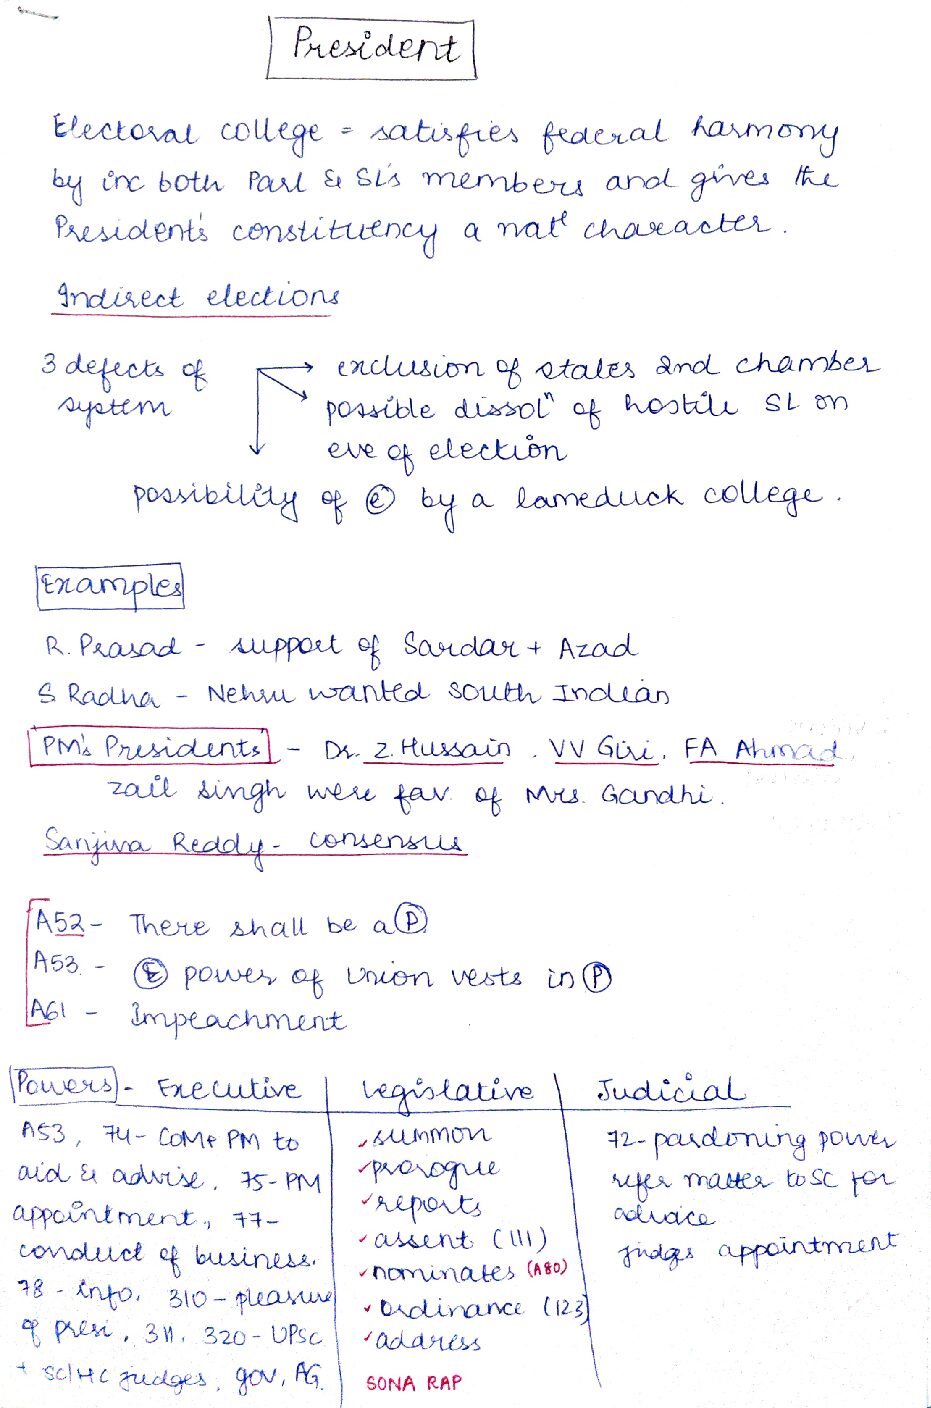 President
Electoral college = satisfies federal harmony
by inc both Parl & SL's members and gives the
President's constituency a natl character.
Indirect elections
3 defects of system
exclusion of states 2nd chamber
possible dissoln of hostile SL on
eve of election
possibility of Ⓔ by a lameduck college.
Examples
R. Prasad - support of Sardar + Azad
S Radha - Nehru wanted south Indian
PM's Presidents - Dr. Z. Hussain, VV Giri, FA Ahmad,
zail singh were fav. of Mrs. Gandhi.
Sanjiva Reddy - consensus
A52 - There shall be a Ⓟ
A53 - Ⓔ power of Union vests in Ⓟ
A61 - Impeachment
Powers - Executive
A53, 74 - COM & PM to
aid & advise, 75 - PM
appointment, 77 -
conduct of business.
78 - info, 310 - pleasure
of presi, 311, 320 - UPSC
+ SC/HC judges, gov, AG.
Legislative
summon
prorogue
reports
assent (111)
nominates (A80)
ordinance (123)
address
SONA RAP
Judicial
72 - pardoning power
refer matter to SC for
advice
judges appointment